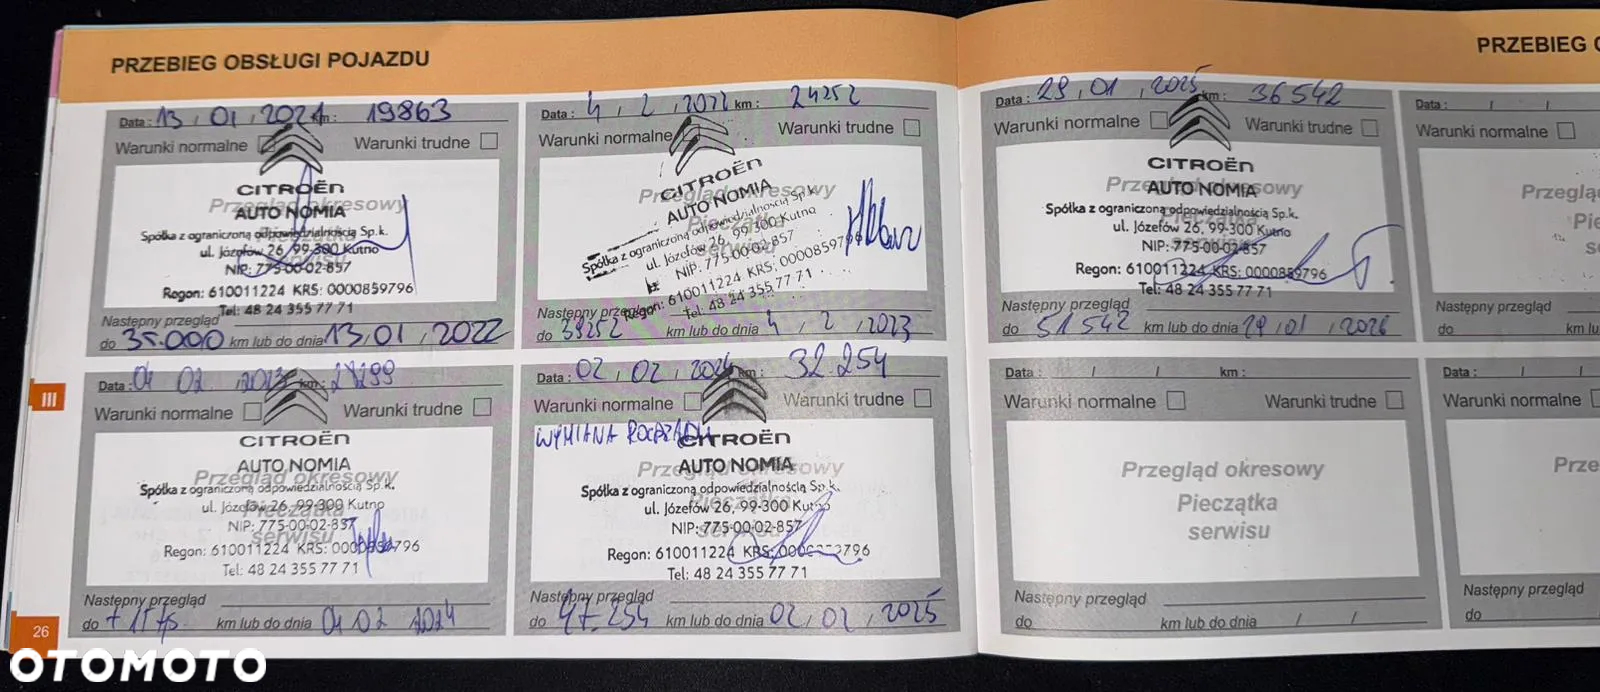 PRZEBIEG OBSŁUGI POJAZDU
Data : 13 , 01 , 2021 km : 19863
Warunki normalne Warunki trudne
CITROËN
Przegląd okresowy
AUTO NOMIA
Pieczątka
Spółka z ograniczoną odpowiedzialnością Sp.k.
ul. Józefów 26, 99-300 Kutno
serwisu
NIP: 775-00-02-857
Regon: 610011224 KRS: 0000859796
Tel: 48 24 355 77 71
Następny przegląd
do 35.000 km lub do dnia 13 , 01 , 2022
Data : 4 , 2 , 2022 km : 24252
Warunki normalne Warunki trudne
CITROËN
Przegląd okresowy
AUTO NOMIA
Pieczątka
Spółka z ograniczoną odpowiedzialnością Sp.k.
ul. Józefów 26, 99-300 Kutno
NIP: 775-00-02-857
Regon: 610011224 KRS: 0000859796
Tel: 48 24 355 77 71
Następny przegląd
do 39252 km lub do dnia 4 , 2 , 2023
Data : 04 02 , 2023 km : 28299
Warunki normalne Warunki trudne
CITROËN
AUTO NOMIA
Przegląd okresowy
Spółka z ograniczoną odpowiedzialnością Sp.k.
ul. Józefów 26, 99-300 Kutno
Pieczątka
NIP: 775-00-02-857
serwisu
Regon: 610011224 KRS: 0000859796
Tel: 48 24 355 77 71
Następny przegląd
do km lub do dnia 04 02 2024
Data : 02 , 02 , 2024 km : 32.254
Warunki normalne Warunki trudne
WYMIANA
CITROËN
AUTO NOMIA
Przegląd okresowy
Spółka z ograniczoną odpowiedzialnością Sp.k.
Pieczątka
ul. Józefów 26, 99-300 Kutno
NIP: 775-00-02-857
serwisu
Regon: 610011224 KRS: 0000859796
Tel: 48 24 355 77 71
Następny przegląd
do 47.254 km lub do dnia 02 , 02 , 2025
III
26
PRZEBIEG
Data : 29 , 01 , 2025 km : 36542
Warunki normalne Warunki trudne
CITROËN
Przegląd okresowy
AUTO NOMIA
Spółka z ograniczoną odpowiedzialnością Sp.k.
Pieczątka
ul. Józefów 26, 99-300 Kutno
NIP: 775-00-02-857
Regon: 610011224 KRS: 0000859796
Tel: 48 24 355 77 71
Następny przegląd
do 51542 km lub do dnia 29 , 01 , 2026
Data : / / km :
Warunki normalne Warunki trudne
Przegląd okresowy
Pieczątka
serwisu
Następny przegląd
do km lub do dnia / /
Data : / /
Warunki normalne
Przeglą
Pie
s
Następny przegląd
do km lu
Data : / /
Warunki normalne
Prze
Następny przegląd
do
OTOMOTO